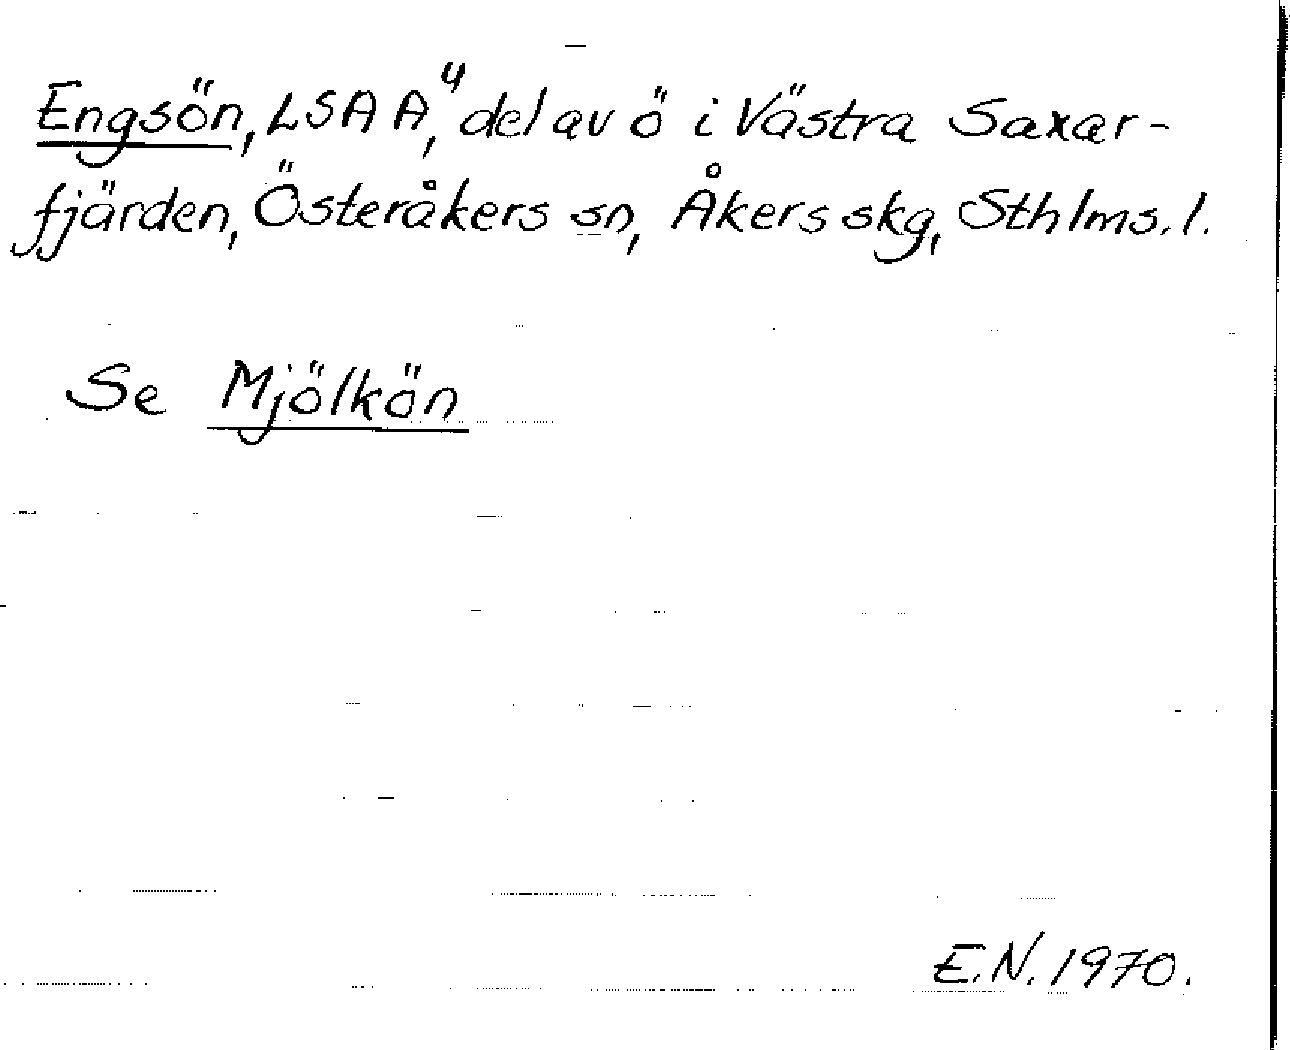 Engsön, LSA A,⁴ del av ö i Västra Saxar-
fjärden, Österåkers sn, Åkers skg, Sthlms. l.
Se Mjölkön
E.N. 1970.